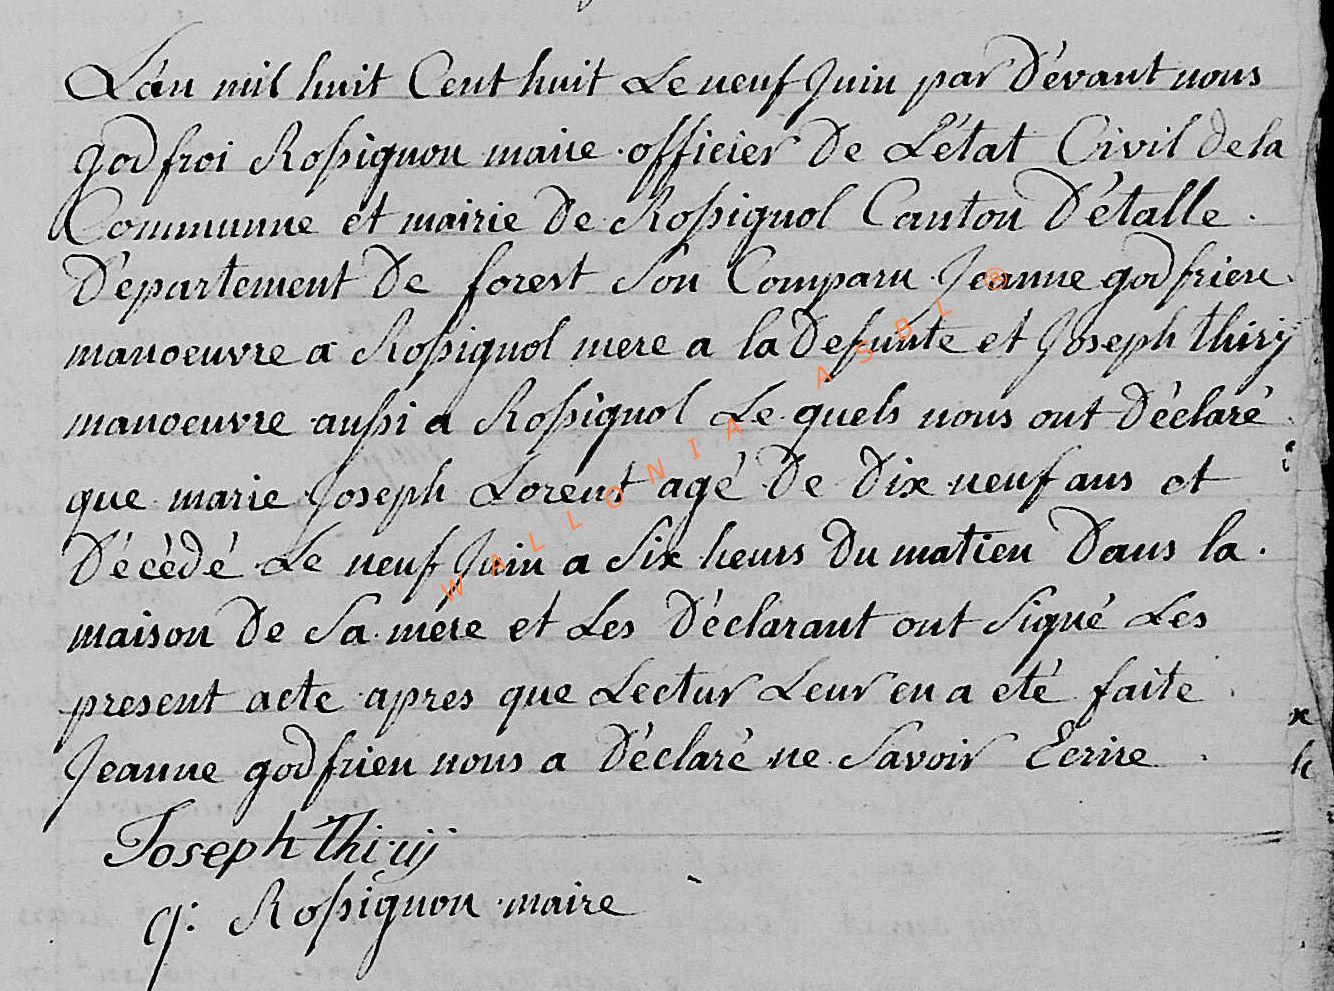 L'an mil huit Cent huit Le neuf Juin par Dévant nous
godfroi Rossignon maire officier De L'état Civil De la
Communne et mairie De Rossignol Canton D'étalle
Département De forest Son Comparu Jeanne godfrien
manoeuvre a Rossignol mere a la Defunte et Joseph thirij
manoeuvre aussi a Rossignol Le quels nous ont Déclaré
que marie Joseph Lorent agé De Dix neuf ans et
Décédé Le neuf Juin a Six heurs Du matien Dans la
maison De Sa mére et Les Déclarant ont Signé Les
present acte apres que Lectur Leur en a eté faite
Jeanne godfrien nous a Déclaré ne Savoir Ecrire
Joseph thirij
g: Rossignon maire
WALLONIA ASBL ®